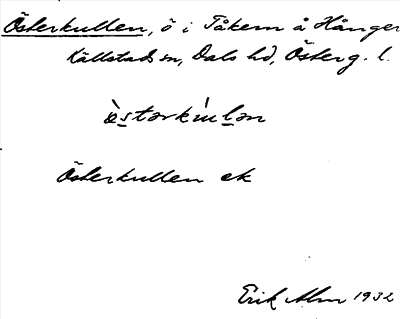 Österkullen, ö i Tåkern å Hånger
Källstads sn, Dals hd, Österg. l.
Österkullen ek
Erik Alm 1932